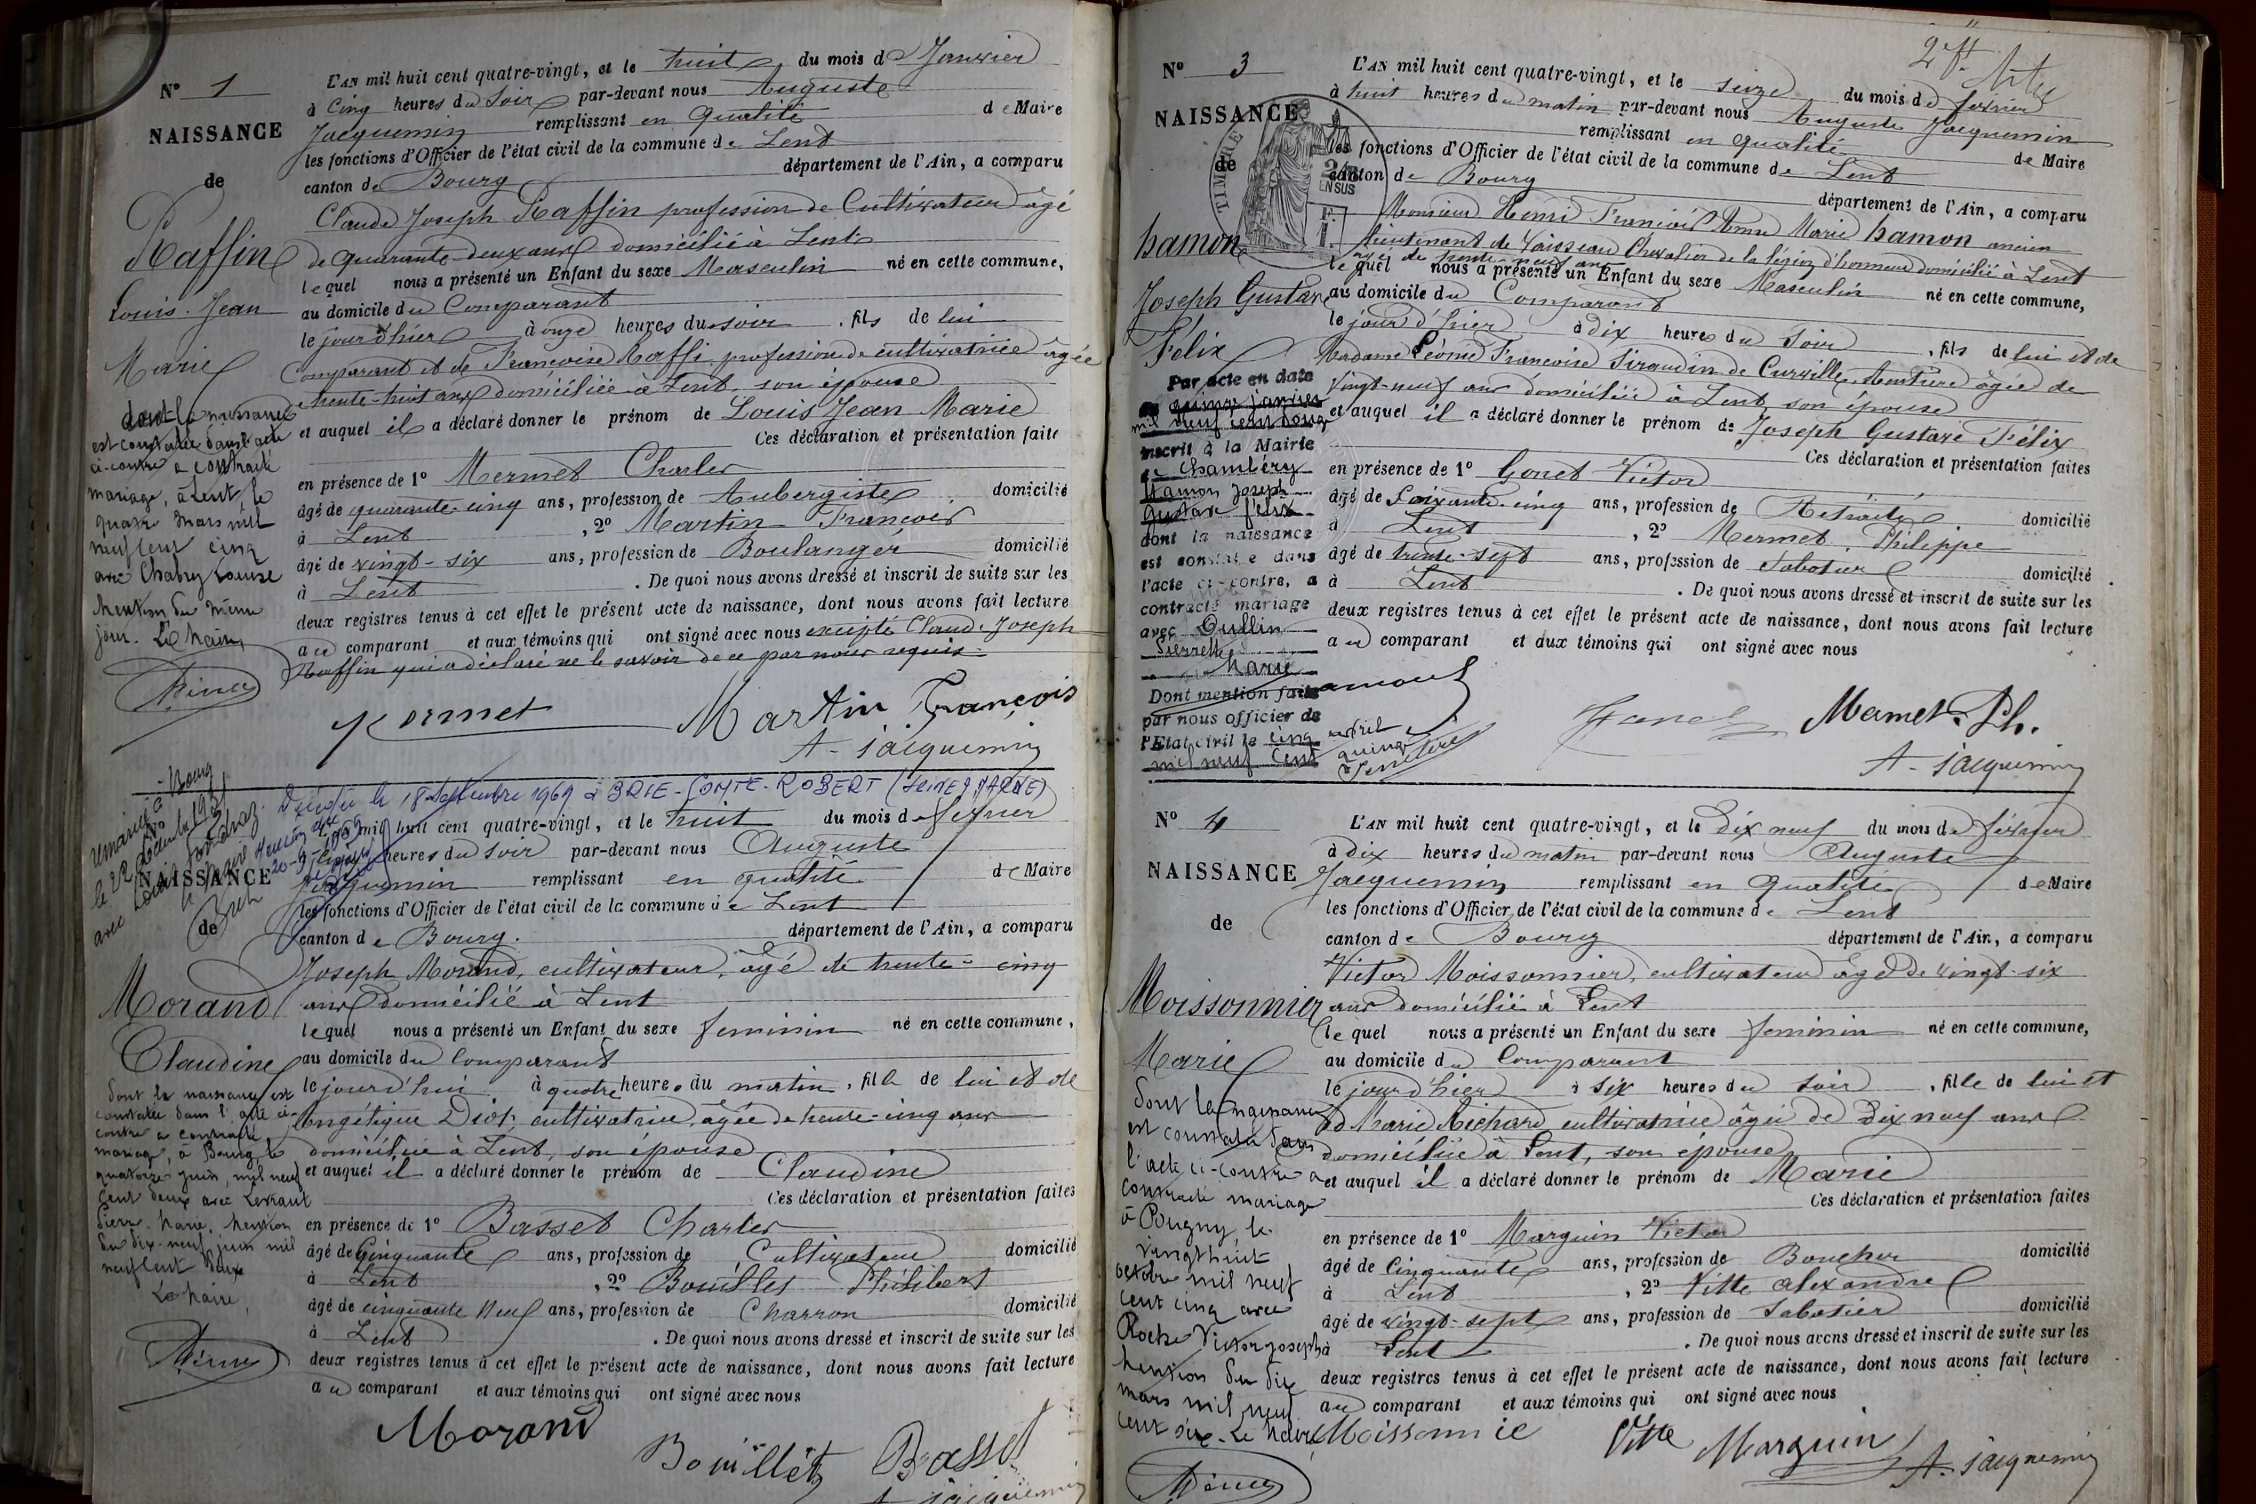 N° 1
NAISSANCE
de
Raffin
Louis Jean
Marie
dont la naissance
est constatée dans l'acte
ci-contre a contracté
mariage, à Lent le
quatre mars mil
neuf cent cinq
avec Chabry Louise
Mention du même
jour. Le Maire,
L'AN mil huit cent quatre-vingt, et le huit du mois de Janvier
à Cinq heures du Soir par-devant nous Auguste
Jacquemin remplissant en qualité de Maire
les fonctions d'Officier de l'état civil de la commune de Lent
canton de Bourg département de l'Ain, a comparu
Claude Joseph Raffin profession de Cultivateur âgé
de quarante-deux ans domicilié à Lent
lequel nous a présenté un Enfant du sexe Masculin né en cette commune,
au domicile du Comparant
le jour d'hier à onze heures du soir, fils de lui
Comparant et de Françoise Raffi profession de cultivatrice âgée
trente-huit ans domiciliée à Lent, son épouse
et auquel il a déclaré donner le prénom de Louis Jean Marie
Ces déclaration et présentation faite
en présence de 1° Mermet Charles
âgé de quarante-cinq ans, profession de Aubergiste domicilié
à Lent, 2° Martin François
âgé de vingt-six ans, profession de Boulanger domicilié
à Lent. De quoi nous avons dressé et inscrit de suite sur les
deux registres tenus à cet effet le présent acte de naissance, dont nous avons fait lecture
au comparant et aux témoins qui ont signé avec nous excepté Claude Joseph
Raffin qui a déclaré ne le savoir de ce par nous requis.
Mermet Martin François
A. Jacquemin
Décédée le 18 Septembre 1969 à BRIE-COMTE-ROBERT (SEINE & MARNE)
NAISSANCE
de
Morand
Claudine
dont la naissance est
constatée dans l'acte ci-
contre a contracté
mariage, à Bourg le
quatorze juin, mil neuf
cent deux avec
Pierre Marie. Mention
du dix-neuf juin mil
neuf cent deux
Le Maire,
L'AN mil huit cent quatre-vingt, et le huit du mois de février
heures du Soir par-devant nous Auguste
Jacquemin remplissant en qualité de Maire
les fonctions d'Officier de l'état civil de la commune de Lent
canton de Bourg. département de l'Ain, a comparu
Joseph Morand, cultivateur, âgé de trente-cinq
ans domicilié à Lent
lequel nous a présenté un Enfant du sexe feminin né en cette commune,
au domicile du Comparant
le jour d'hui à quatre heures du matin, fille de lui et de
Angélique Diot, cultivatrice, âgée de trente-cinq ans
domiciliée à Lent, son épouse
et auquel il a déclaré donner le prénom de Claudine
Ces déclaration et présentation faites
en présence de 1° Basset Charles
âgé de Cinquante ans, profession de Cultivateur domicilié
à Lent, 2° Bouillet Philibert
âgé de cinquante neuf ans, profession de Charron domicilié
à Lent. De quoi nous avons dressé et inscrit de suite sur les
deux registres tenus à cet effet le présent acte de naissance, dont nous avons fait lecture
au comparant et aux témoins qui ont signé avec nous
Morand
Bouillet Basset
A Jacquemin
N° 3
NAISSANCE
de
hamon
Joseph Gustave
Félix
Par acte en date
du quinze janvier
mil neuf cent douze
inscrit à la Mairie
de Chambéry
Hamon Joseph
Gustave Félix
dont la naissance
est constatée dans
l'acte ci-contre, a
contracté mariage
avec Dullin
Pierrette
Marie
Dont mention faite
par nous officier de
l'Etat civil le cinq avril
mil neuf cent quinze
TIMBRE
L'AN mil huit cent quatre-vingt, et le seize du mois de février
à huit heures du matin par-devant nous Auguste Jacquemin
remplissant en qualité de Maire
les fonctions d'Officier de l'état civil de la commune de Lent
canton de Bourg département de l'Ain, a comparu
Monsieur Henri François Anne Marie hamon ancien
lieutenant de Vaisseau Chevalier de la légion d'honneur domicilié à Lent
âgé de trente-neuf ans
lequel nous a présenté un Enfant du sexe Masculin né en cette commune,
au domicile du Comparant
le jour d'hier à dix heures du Soir, fils de lui et de
Madame Léonie Françoise Siraudin de Curville âgée de
vingt-neuf ans domiciliée à Lent son épouse
et auquel il a déclaré donner le prénom de Joseph Gustave Félix
Ces déclaration et présentation faites
en présence de 1° Gonet Victor
âgé de Soixante-cinq ans, profession de Retraité domicilié
à Lent, 2° Mermet Philippe
âgé de trente-sept ans, profession de Sabotier domicilié
à Lent. De quoi nous avons dressé et inscrit de suite sur les
deux registres tenus à cet effet le présent acte de naissance, dont nous avons fait lecture
au comparant et aux témoins qui ont signé avec nous
Mermet Ph.
A. Jacquemin
N° 4
NAISSANCE
de
Moissonnier
Marie
Dont la naissance
est constatée dans
l'acte ci-contre a
contracté mariage
à Pougny, le
vingt huit
octobre mil neuf
cent cinq avec
Roche Victor Joseph
Mention du dix
mars mil neuf
cent six. Le Maire
L'AN mil huit cent quatre-vingt, et le Dix neuf du mois de février
à dix heures du matin par-devant nous Auguste
Jacquemin remplissant en qualité de Maire
les fonctions d'Officier de l'état civil de la commune de Lent
canton de Bourg département de l'Ain, a comparu
Victor Moissonnier, cultivateur âgé de vingt-six
ans domicilié à Lent
lequel nous a présenté un Enfant du sexe feminin né en cette commune,
au domicile du Comparant
le jour d'hier à six heures du soir, fille de lui et
de Marie Richard cultivatrice âgée de Dix neuf ans
domiciliée à Lent, son épouse
et auquel il a déclaré donner le prénom de Marie
Ces déclaration et présentation faites
en présence de 1° Marguin Victor
âgé de Cinquante ans, profession de Boucher domicilié
à Lent, 2° Vitte Alexandre
âgé de vingt-sept ans, profession de Sabotier domicilié
à Lent. De quoi nous avons dressé et inscrit de suite sur les
deux registres tenus à cet effet le présent acte de naissance, dont nous avons fait lecture
au comparant et aux témoins qui ont signé avec nous
Moissonnie Vitte Marguin
A. Jacquemin